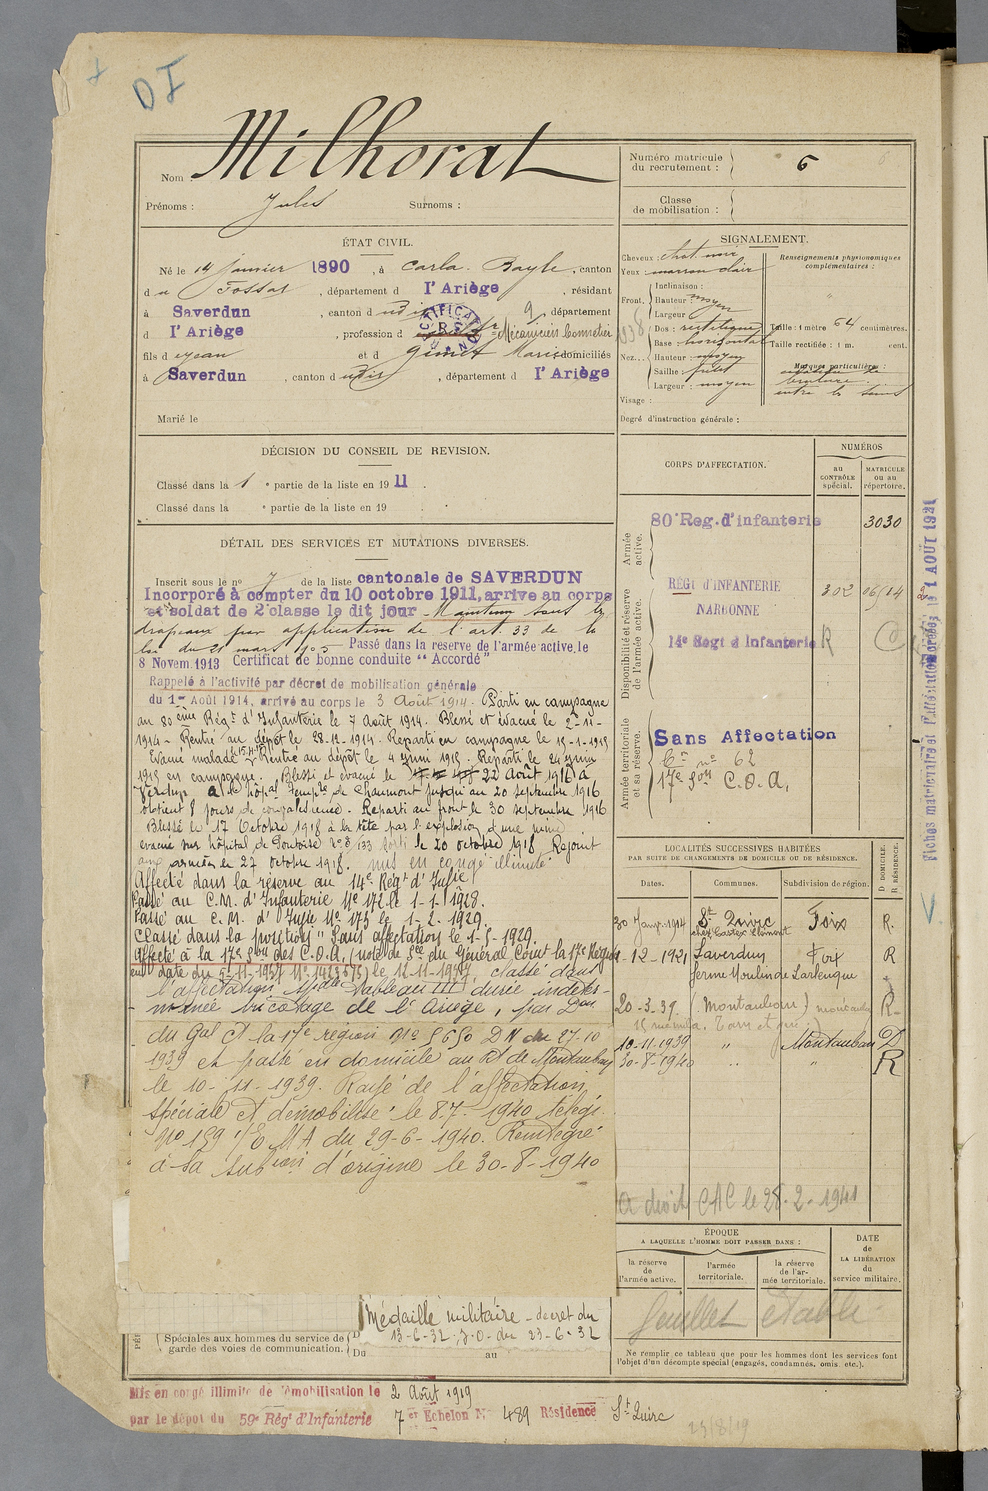 DI
Nom : Milhorat
Prénoms : Jules Surnoms :
Numéro matricule du recrutement : 6
Classe de mobilisation :
ÉTAT CIVIL.
Né le 14 janvier 1890, à Carla-Bayle, canton
d u Fossat, département d l'Ariège, résidant
à Saverdun, canton d udit, département
d l'Ariège, profession d Mécanicien
fils d e Jean et d Marie, domiciliés
à Saverdun, canton d udit, département d l'Ariège
Marié le
SIGNALEMENT.
Cheveux : chat. noir
Yeux : marron clair
Renseignements physionomiques complémentaires :
Front. Inclinaison :
Hauteur : moyen
Largeur :
Nez. Dos : rectiligne
Base : horizontal
Hauteur : moyen
Saillie : petit
Largeur : moyen
Taille : 1 mètre 64 centimètres.
Taille rectifiée : 1 m. cent.
Marques particulières :
Visage :
Degré d'instruction générale :
DÉCISION DU CONSEIL DE REVISION.
Classé dans la 1e partie de la liste en 1911.
Classé dans la e partie de la liste en 19 .
CORPS D'AFFECTATION.
NUMÉROS
au CONTRÔLE spécial.
MATRICULE ou au répertoire.
Armée active.
80e Reg. d'infanterie 3030
Disponibilité et réserve de l'armée active.
RÉGt d'INFANTERIE 302 06/14
NARBONNE
14e Regt d Infanterie R
Armée territoriale et sa réserve.
Sans Affectation
62
17e Son C.O.A.
DÉTAIL DES SERVICES ET MUTATIONS DIVERSES.
Inscrit sous le no 7 de la liste cantonale de SAVERDUN
Incorporé à compter du 10 octobre 1911, arrive au corps
et soldat de 2e classe le dit jour Maintenu sous les
drapeaux par application de l'art. 33 de la
loi du 21 mars 1905 Passé dans la reserve de l'armée active, le
8 Novem. 1913 Certificat de bonne conduite "Accordé"
Rappelé à l'activité par décret de mobilisation générale
du 1er Août 1914, arrivé au corps le 3 Août 1914. Parti en campagne
au 80ème Régt d'Infanterie le 7 Août 1914. Blessé et évacué le 2-11-
1914 - Rentré au dépôt le 28-11-1914. Reparti en campagne le 15-1-1915
Evacué malade Rentré au dépôt le 4 juin 1915. Reparti le 24 juin
1915 en campagne. Blessé et évacué le 22 Août 1916 à
Verdun à l'hôpal Tempre de Chaumont jusqu'au 20 septembre 1916
obtient 8 jours de convalescence. Reparti au front le 30 septembre 1916
Blessé le 17 Octobre 1918 à la tête par l'explosion d'une mine
évacué sur hôpital de Pontoise sorti le 20 octobre 1918. Rejoint
aux armées le 27 octobre 1918. mis en congé illimité
Affecté dans la réserve au 14e Régt d'Infie
Passé au C.M. d'Infanterie No 172 le 1-1-1928.
Passé au C.M. d'Infie No 173 le 1-2-1929.
Classé dans la position "Sans affectation" le 1-5-1929
Affecté à la 17e Son des C.O.A. (note de Sce du Général Comt la 17e Région
en date du 5-11-1937 No 1423573) le 12-11-1937, classé dans
l'affectation spéciale Tableau III durée indéter-
minée tricotage de l'Ariège, par Don
du Gal Ct la 17e région No 5650 DM du 27-10
1939 et passé en domicile au Rt de Montauban
le 10-11-1939. Rayé de l'affectation
spéciale et démobilisé le 8.7-1940 télégr.
No 159 1/E.M.A du 29-6-1940. Réintégré
à sa subon d'origine le 30-8-1940
LOCALITÉS SUCCESSIVES HABITÉES
PAR SUITE DE CHANGEMENTS DE DOMICILE OU DE RÉSIDENCE.
Dates. Communes. Subdivision de région. D DOMICILE. R RÉSIDENCE.
30 Janv. 1914 St Quirc Foix R.
1-12-1921 Saverdun Foix R
ferme Moulin de Larlenque
20-3-39 (Montauban) R
10-11-1939 " Montauban D
30-8-1940 " " R
a droit CAC le 28-2-1941
ÉPOQUE
A LAQUELLE L'HOMME DOIT PASSER DANS :
la réserve de l'armée active.
l'armée territoriale.
la réserve de l'armée territoriale.
DATE de LA LIBÉRATION du service militaire.
feuillet établi
Ne remplir ce tableau que pour les hommes dont les services font l'objet d'un décompte spécial (engagés, condamnés, omis, etc.).
Médaille militaire - decret du
13-6-32, J.O. du 23-6-32
Spéciales aux hommes du service de garde des voies de communication.
Du au
Mis en congé illimité de démobilisation le 2 Août 1919
par le dépôt du 59e Régt d'Infanterie 7er Echelon No 489 Résidence St Quirc
23/8/19